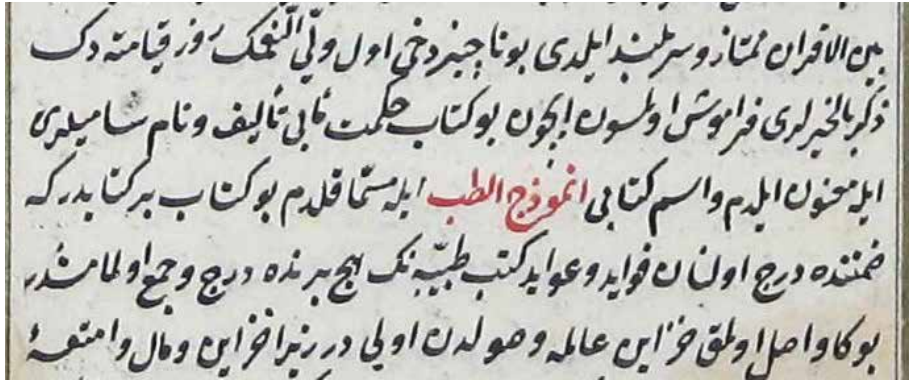 بين الاقران ممتاز وسربلند ايلدى بو ناچيز دخى اول ولى النعمك روز قيامته دك
ذكر بالخيرلرى فراموش اولمسون ايچون بو كتاب حكمت مآبى تأليف و نام ساميلرى
ايله معنون ايلدم و اسم كتابى انموذج الطب ايله مسمّا قلدم بو كتاب بر كتابدر كه
ضمننده درج اولنان فوايد و عوايد كتب طبّيه نك هيچ برنده درج و جمع اولمامشدر
بوكا واصل اولمق خزاين عالمه وصولدن اولى در زيرا خزاين و مال و امتعۀ